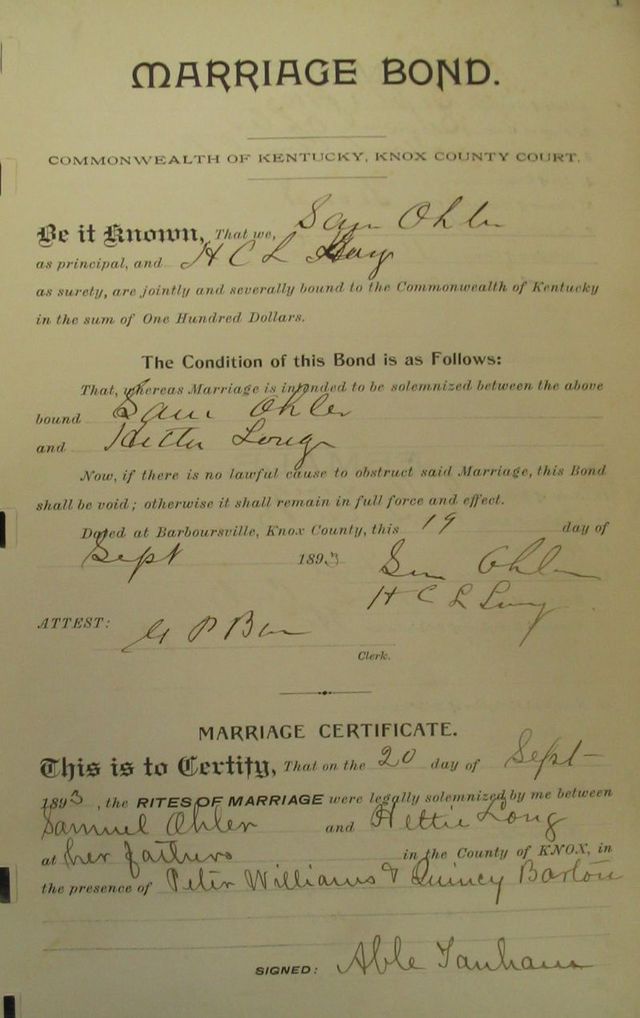 MARRIAGE BOND.
COMMONWEALTH OF KENTUCKY, KNOX COUNTY COURT.
Be it Known, That we, Sam Ohler
as principal, and H C L Long
as surety, are jointly and severally bound to the Commonwealth of Kentucky
in the sum of One Hundred Dollars.
The Condition of this Bond is as Follows:
That, whereas Marriage is intended to be solemnized between the above
bound Sam Ohler
and Hettie Long
Now, if there is no lawful cause to obstruct said Marriage, this Bond
shall be void; otherwise it shall remain in full force and effect.
Dated at Barboursville, Knox County, this 19 day of
Sept 1893 Sam Ohler
H C L Long
ATTEST:
Clerk.
MARRIAGE CERTIFICATE.
This is to Certify, That on the 20 day of Sept
1893, the RITES OF MARRIAGE were legally solemnized by me between
Samuel Ohler and Hettie Long
at her fathers in the County of KNOX, in
the presence of Peter Williams & Quincy Barton
SIGNED: Able